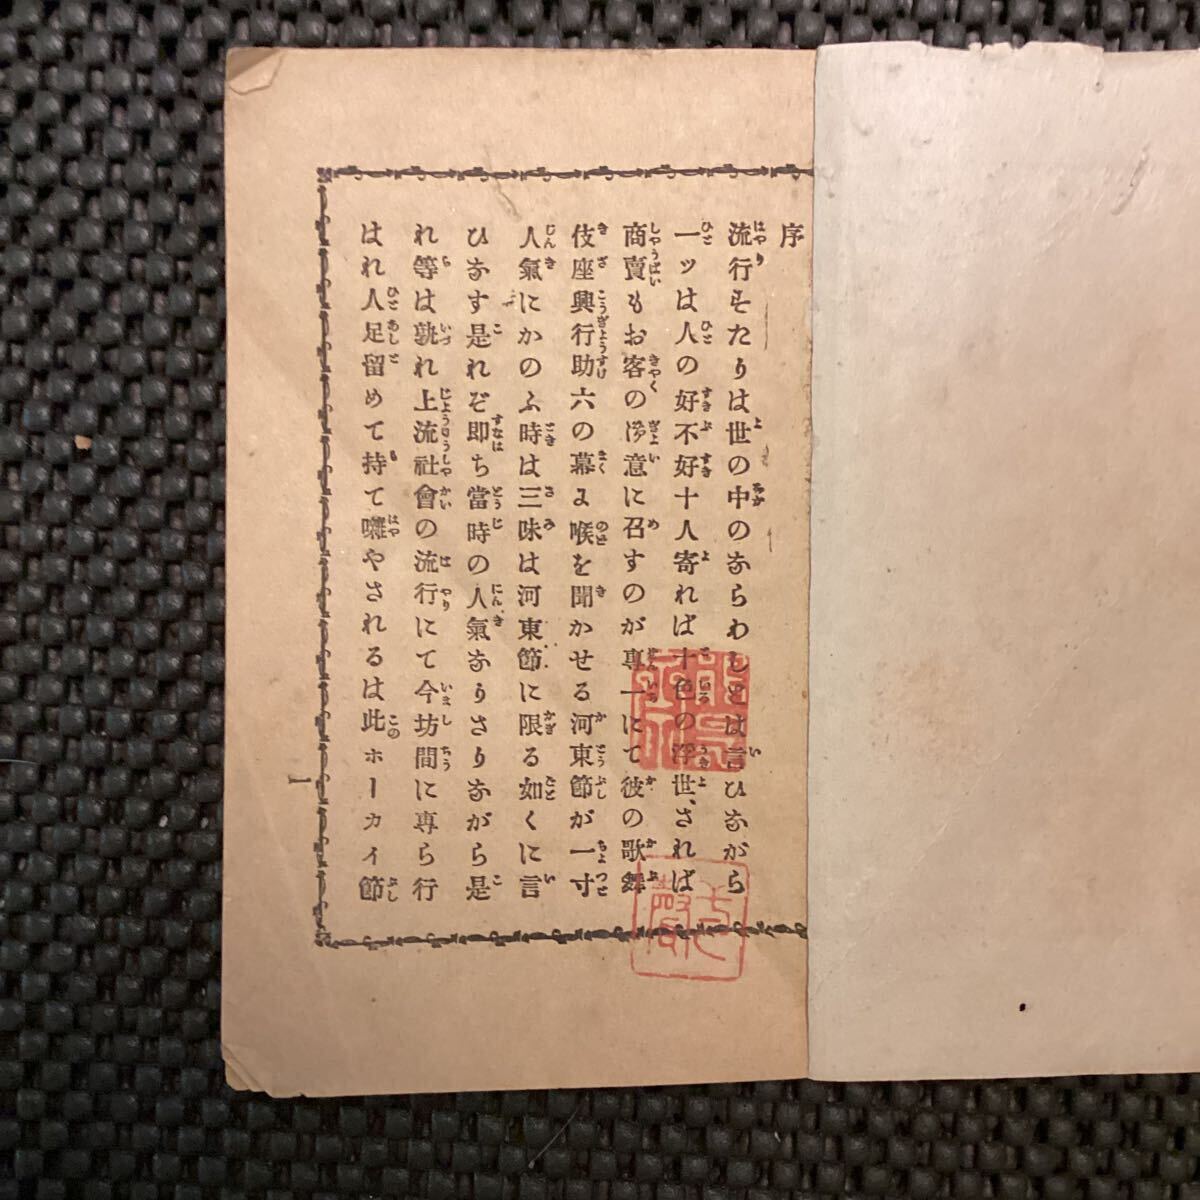 序
流行すたりは世の中のならわしとは言ひながら
一ッは人の好不好十人寄れば十色の浮世、されば
商賣もお客の御意に召すのが專一にて彼の歌舞
伎座興行助六の幕に喉を聞かせる河東節が一寸
人氣にかのふ時は三味は河東節に限る如くに言
ひなす是れぞ即ち當時の人氣なりさりながら是
れ等は孰れ上流社會の流行にて今坊間に專ら行
はれ人足留めて持て囃やされるは此ホーカイ節
一